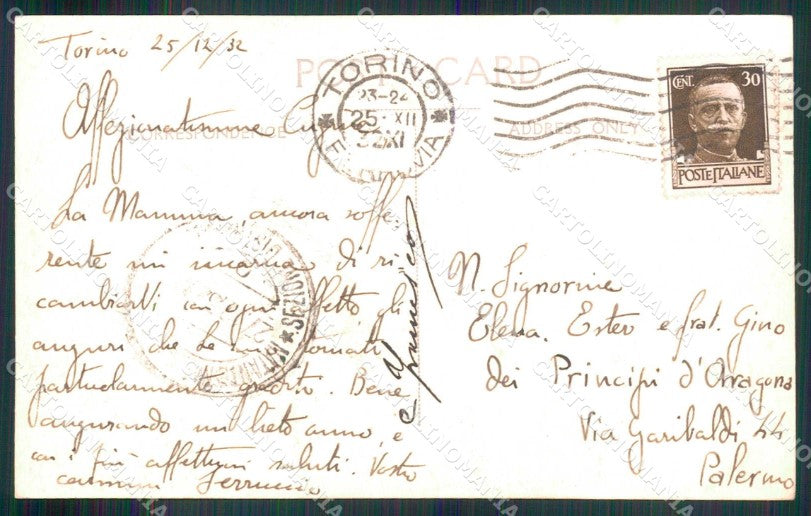 Torino 25/12/32
POST CARD
TORINO
23-24
25 XII
32 XI
FERROVIA
CENT. 30
POSTE ITALIANE
Affezionatissime Cugine
CORRESPONDENCE
ADDRESS ONLY
La Mamma, ancora soffe
rente mi incarica di ri
cambiarVi con ogni affetto gli
auguri che Le sono tornati
particolarmente graditi. Bene
augurando un lieto anno, e
con i più affettuosi saluti. Vostro
Ferruccio
e Francesco
SEZIONE
N. Signorine
Elena. Ester e frat. Gino
dei Principi d'Arragona
Via Garibaldi 44
Palermo
CARTOLINOMANIA